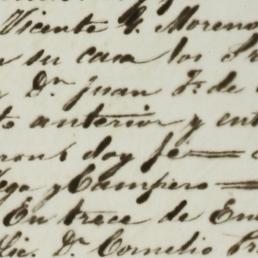 Vicente G. Moreno
su casa los
Dn. Juan Fo. de
to anterior y ent
doy fé
ega y Campero
En trece de En
Lic. Dn. Cornelio